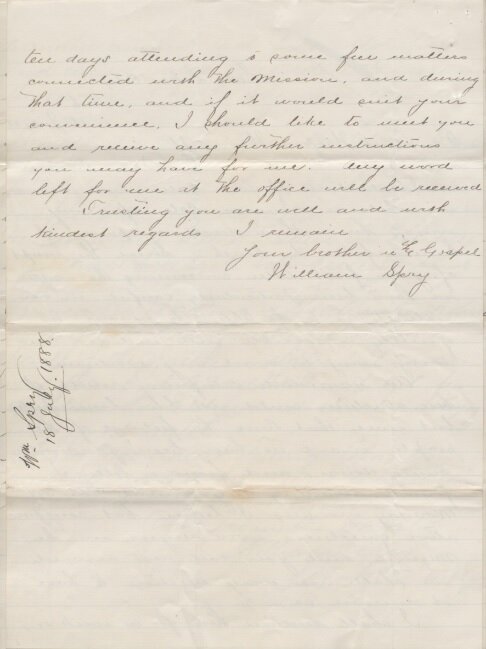 ten days attending to some few matters
connected with the Mission, and during
that time, and if it would suit your
convenience, I should like to meet you
and receive any further instructions
you may have for me. Any word
left for me at the office will be received
Trusting you are well and with
kindest regards I remain
Your brother in the Gospel
William Spry
Wm Spry
18 July. 1888.